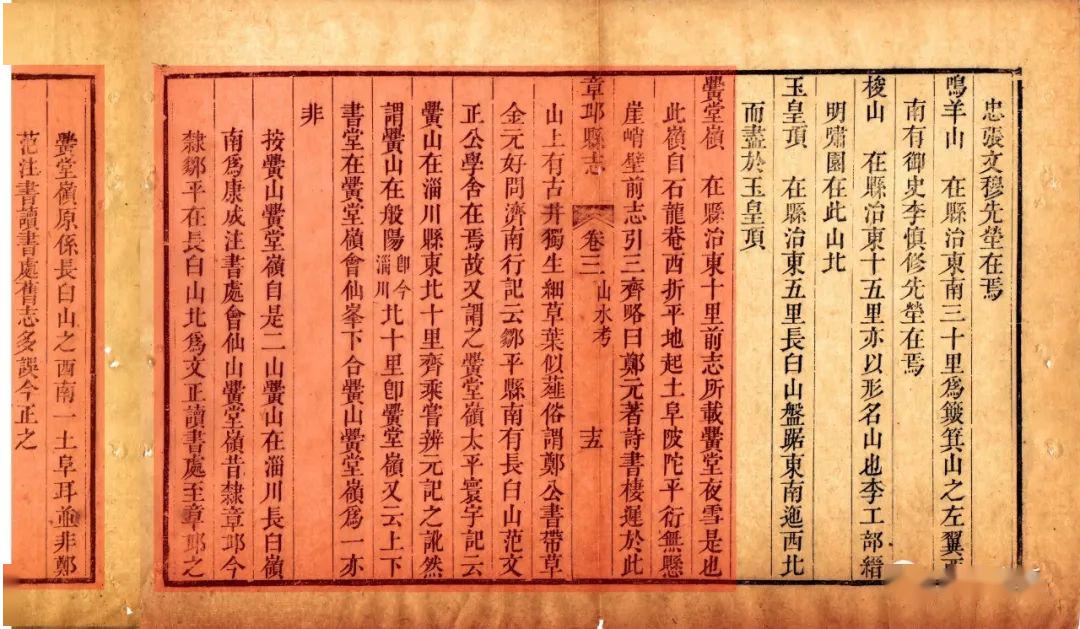 忠張文穆先塋在焉
鳴羊山　在縣治東南三十里爲簸箕山之左翼西
南有御史李愼修先塋在焉
梭山　在縣治東十五里亦以形名山也李工部縉
明嘯園在此山北
玉皇頂　在縣治東五里長白山盤踞東南迤西北
而盡於玉皇頂
黌堂嶺　在縣治東十里前志所載黌堂夜雪是也
此嶺自石龍菴西折平地起土阜陂陀平衍無懸
崖峭壁前志引三齊略曰鄭元著詩書棲遲於此
章邱縣志　卷三　山水考　十五
山上有古井獨生細草葉似薤俗謂鄭公書帶草
金元好問濟南行記云鄒平縣南有長白山范文
正公學舍在焉故又謂之黌堂嶺太平寰宇記云
黌山在淄川縣東北十里齊乘嘗辨元記之訛然
謂黌山在般陽卽今淄川北十里卽黌堂嶺又云上下
書堂在黌堂嶺會仙峯下合黌山黌堂嶺爲一亦
非
按黌山黌堂嶺自是二山黌山在淄川長白嶺
南爲康成注書處會仙山黌堂嶺昔隸章邱今
隸鄒平在長白山北爲文正讀書處至章邱之
黌堂嶺原係長白山之西南一土阜耳並非鄭
范注書讀書處舊志多誤今正之